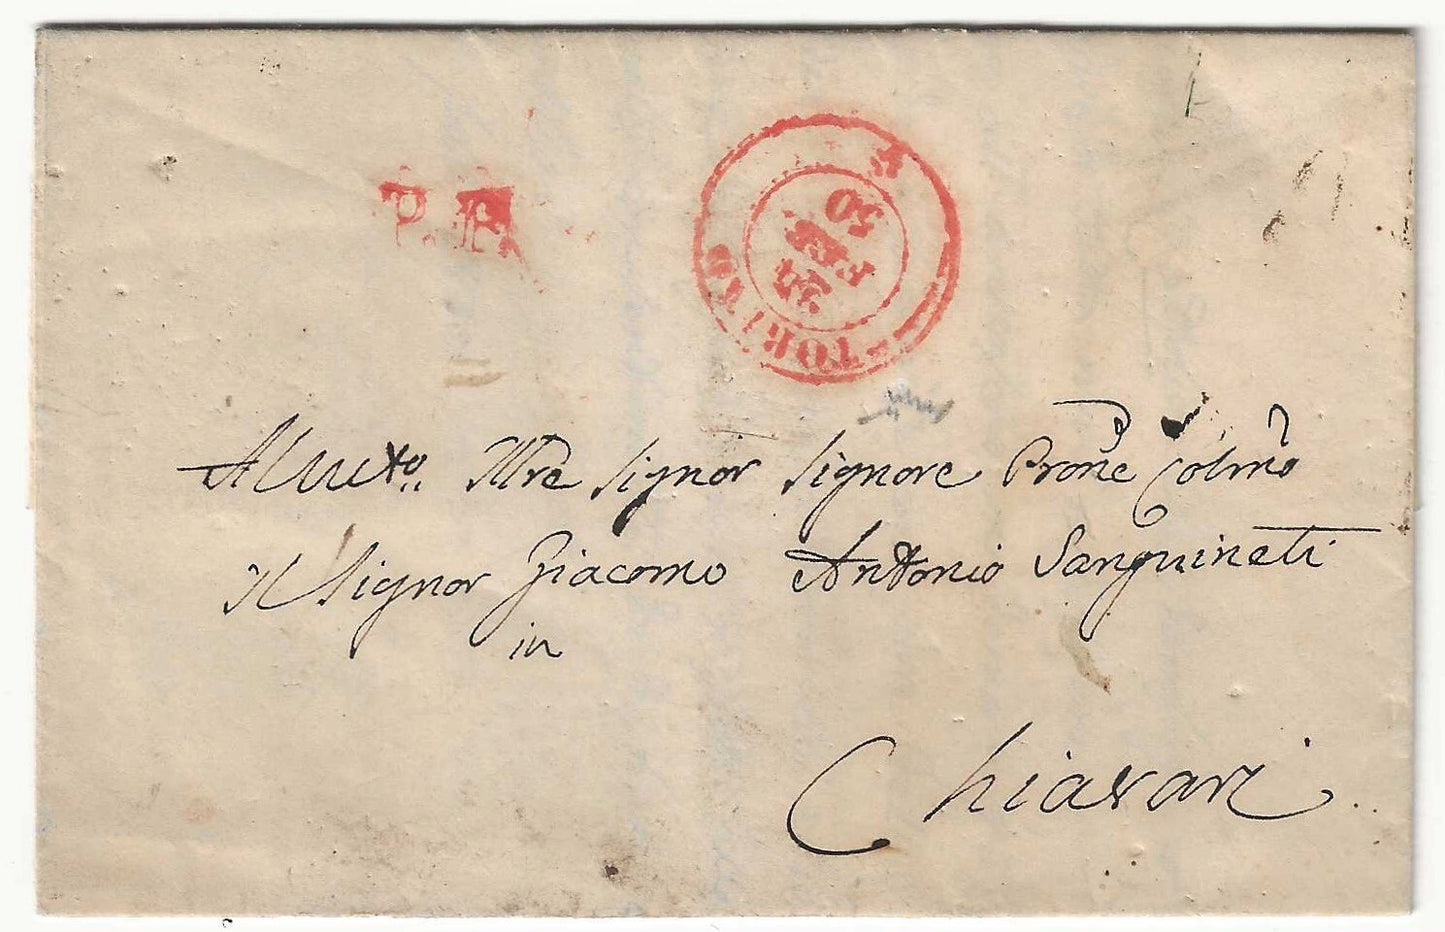 P. P.
TORINO
25
FEB
50
Al Mto. Illre Signor Signore Prone Colmo
Il Signor Giacomo Antonio Sanguineti
in
Chiavari